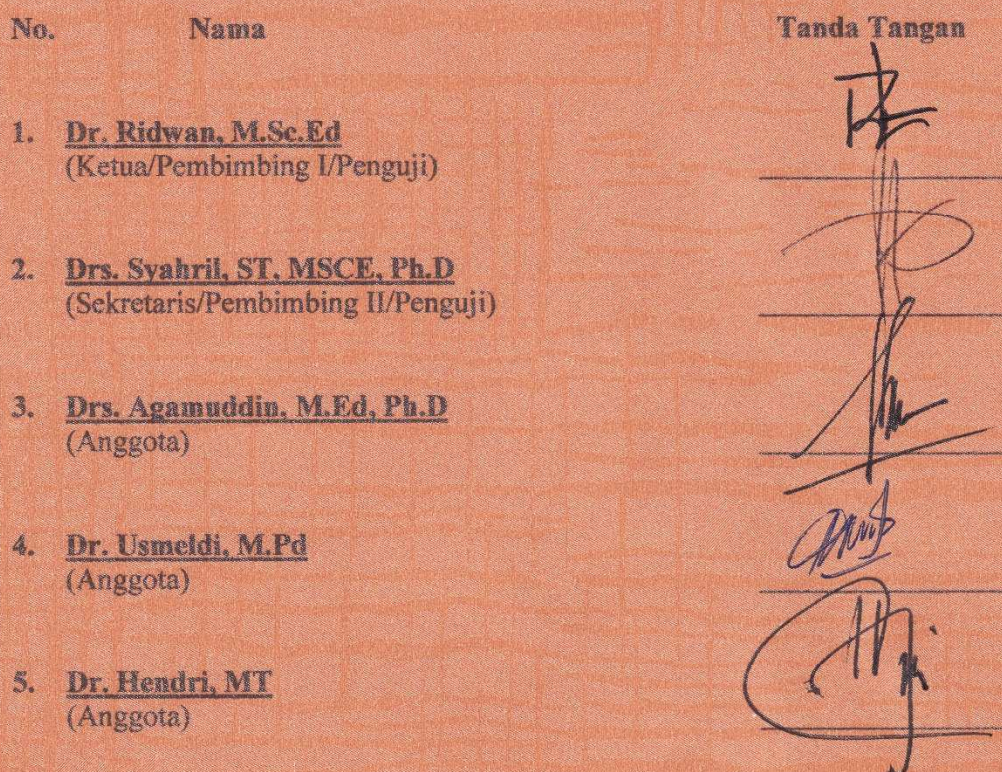 No. Nama Tanda Tangan
1. Dr. Ridwan, M.Sc.Ed
(Ketua/Pembimbing I/Penguji)
2. Drs. Syahril, ST, MSCE, Ph.D
(Sekretaris/Pembimbing II/Penguji)
3. Drs. Agamuddin, M.Ed, Ph.D
(Anggota)
4. Dr. Usmeldi, M.Pd
(Anggota)
5. Dr. Hendri, MT
(Anggota)